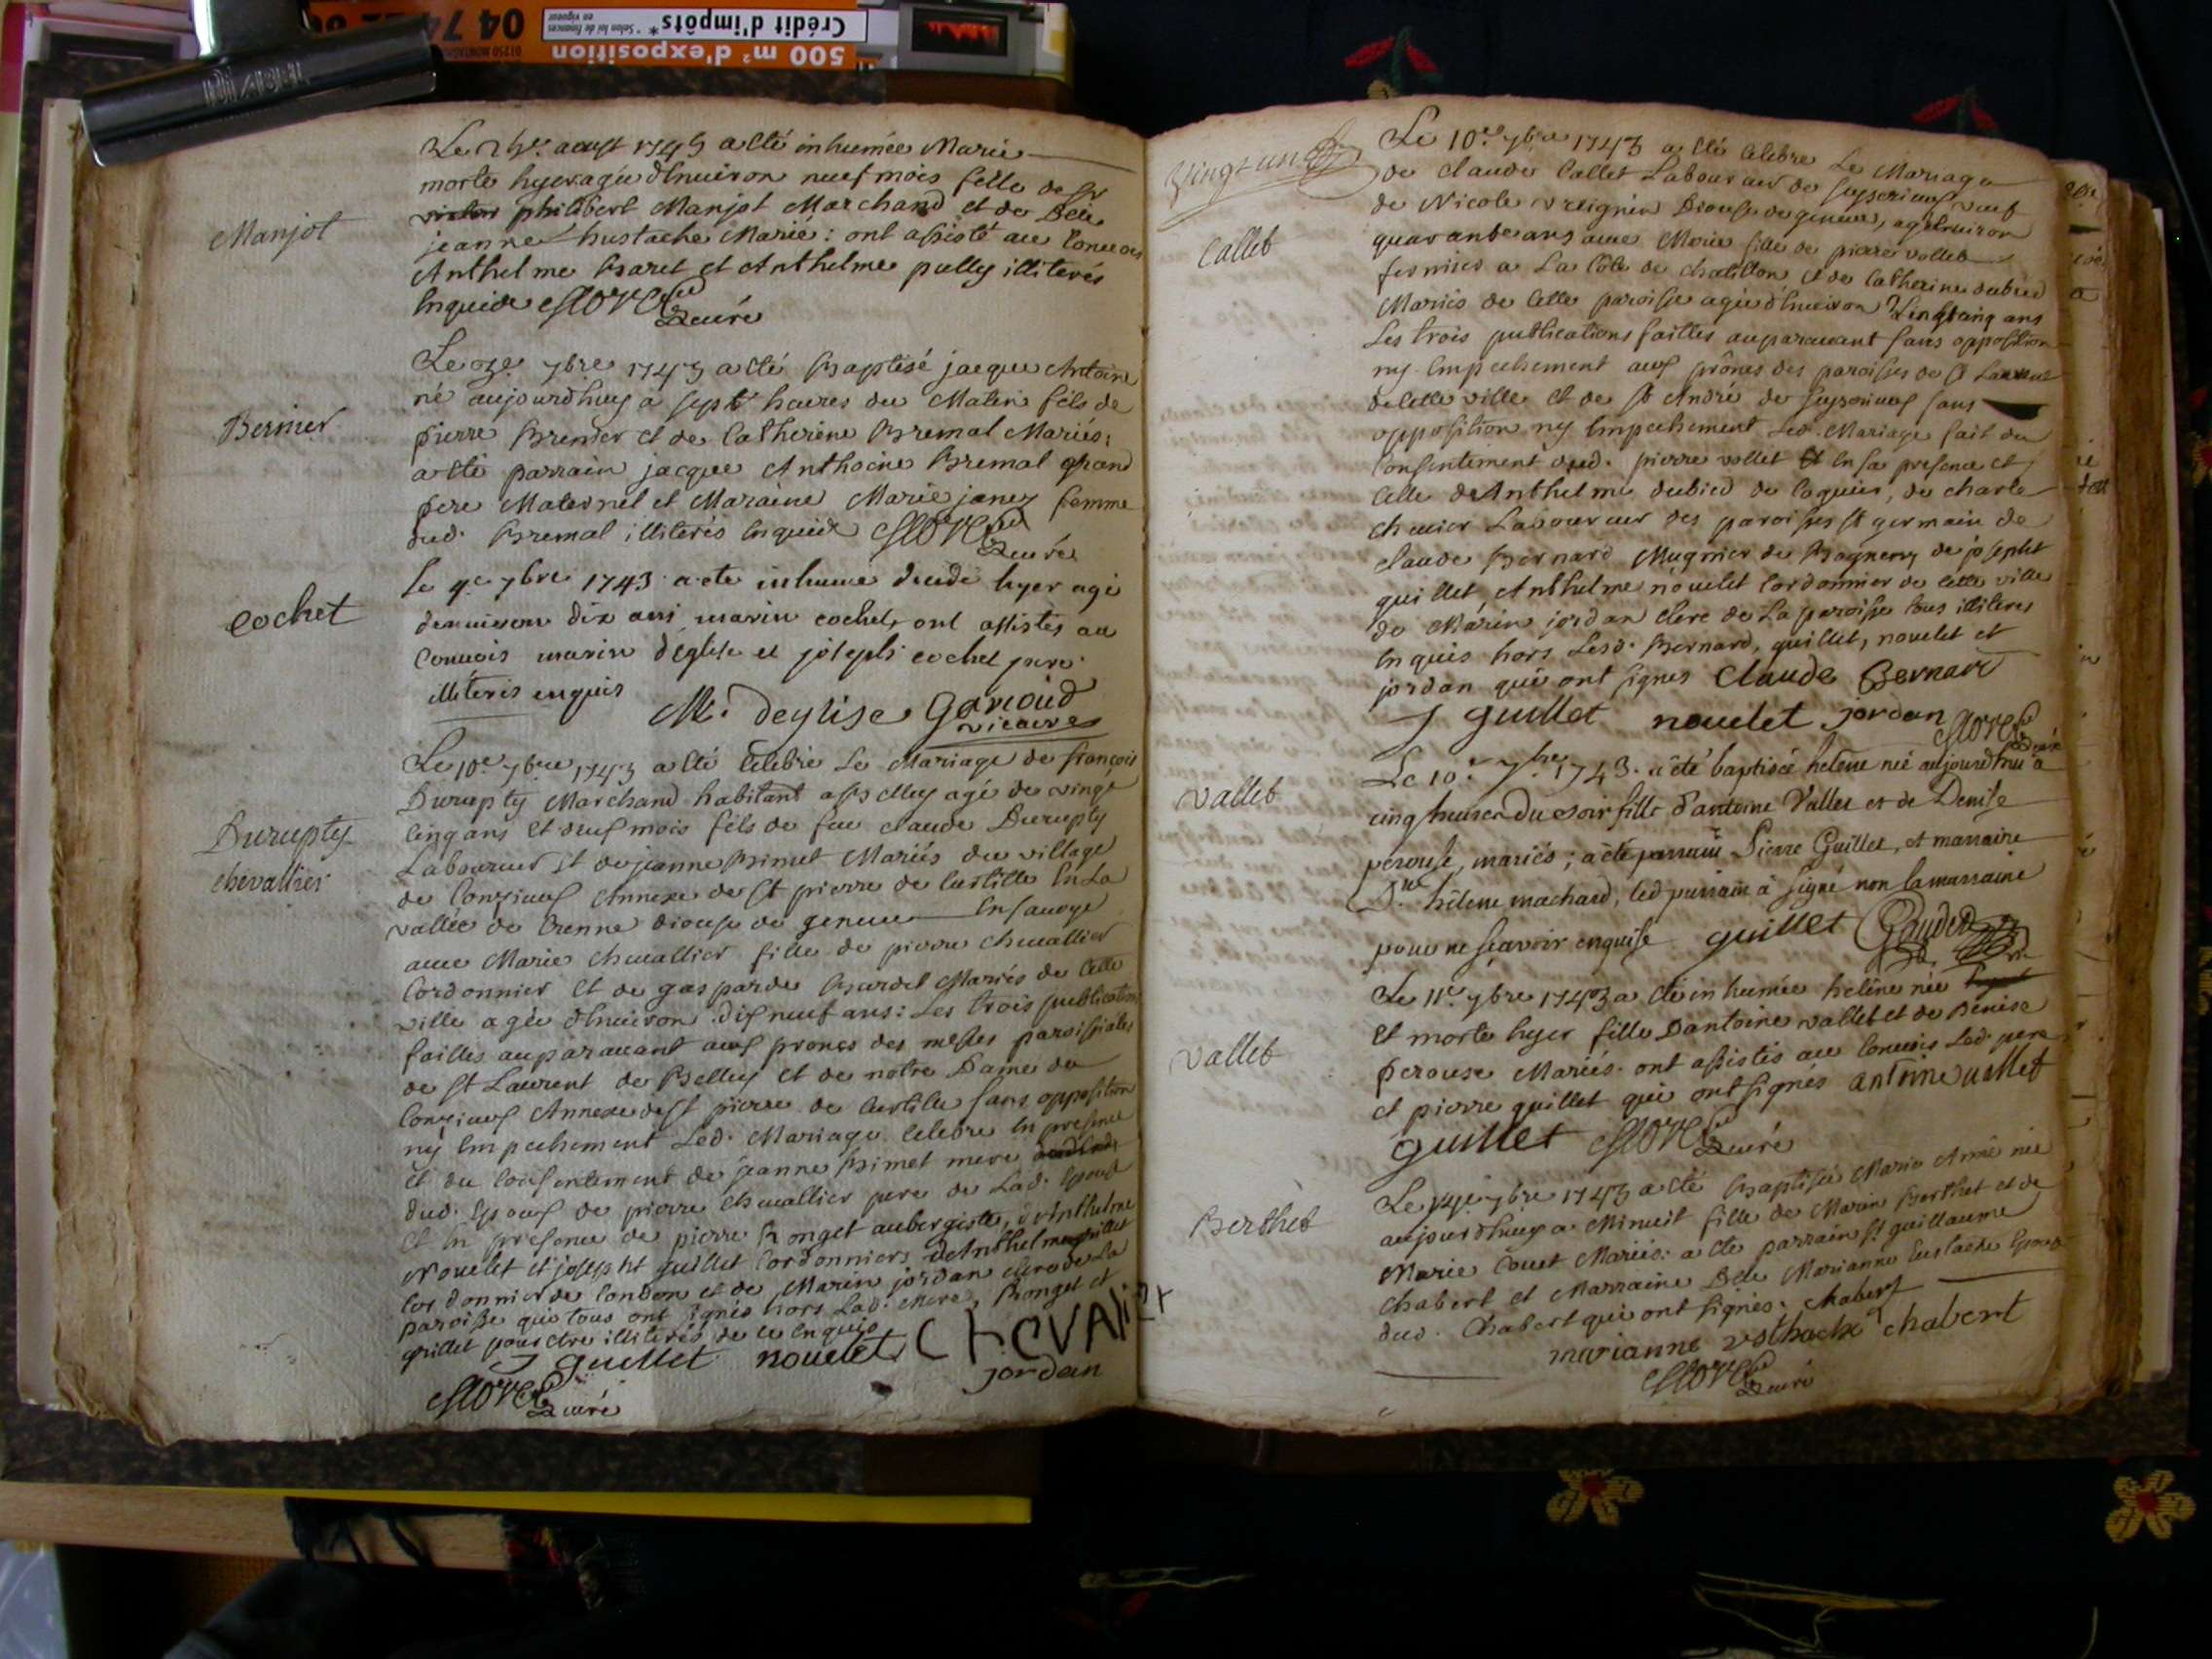 Crédit d'impôts*
500 m² d'exposition
Manjot
Le aoust 1743 a été inhumée Marie
morte hyer agée d'Environ neuf mois fille de Sr
philibert Manjot Marchand et de Delle
jeanne Eustache Mariés: ont assisté au Convoi
Anthelme Baret et Anthelme pully illiterés
Enquis Curé
Bernier
Le 7bre 1743 a été Baptisé jacque Antoine
né aujourdhuy a sept heures du Matin fils de
pierre Bernier et de Catherine Bremal Mariés;
a été parrain jacque Anthoine Bremal grand
pere Maternel et Maraine Marie janez femme
dud. Bremal illiterés Enquis Curé
Cochet
le 9e 7bre 1743 a ete inhumé decedé hyer agé
denuiron dix ans marin cochet, ont assistés au
Convois marin deglise et joseph cochet pere
illiterés enquis
M. deglise Garioud
vicaire
Durupty
chevallier
Le 10e 7bre 1743 a été Célébré Le Mariage de françois
Durupty Marchand habitant a Belley agé de vingt
Cinq ans et neuf mois fils de feu Claude Durupty
Laboureur et de jeanne Bimet Mariés du village
de Conzieux Annexe de St pierre de Curtille En La
vallée de Crenne diocese de geneve En savoye
avec Marie chevallier fille de pierre chevallier
Cordonnier et de gasparde Bardel Mariés de Cette
ville agée d'Environ dix neuf ans: Les trois publications
faittes auparavant aux prones des messes paroissiales
de St Laurent de Belley et de notre Dame de
Conzieux Annexe de St pierre de Curtille sans opposition
ny Empechement Led. Mariage Celebré En presence
et du Consentement de jeanne Bimet mere
dud. Epoux de pierre chevallier pere de Lad. Epouse
et En presence de pierre Ronget aubergiste, d'Anthelme
Nouelet et joseph guillet Cordonniers, de Anthelme grillet
Cordonnier de Condon et de Marin jordan clerc de La
paroisse qui tous ont signés hors Lad. Mere, Ronget et
grillet pour etre illiterés de ce Enquis
J guillet nouelet CHEVALIER
jordan
Curé
Vingt un
Callet
Le 10e 7bre 1743 a été Celebré Le Mariage
de claude Callet Laboureur de seyserieux veuf
de Nicole vreignier Diocese de geneve, agé d'Environ
quarante ans avec Marie fille de pierre vollet
fermier a La Côte de chatillon et de Catherine dubied
Mariés de Cette paroisse agée d'Environ vingt cinq ans
Les trois publications faittes auparavant sans opposition
ny Empechement aux prônes des paroisses de St Laurent
de Cette ville et de St André de seyserieux sans
opposition ny Empechement Led. Mariage fait du
Consentement dud. pierre vollet Et En sa presence et
Celle d'Anthelme dubied de Coquier, de charle
chevier Laboureur des paroisses St germain de
claude Bernard Mugnier de Bagnerry de joseph
guillet, Anthelme nouelet Cordonnier de Cette ville
de Marin jordan clerc de La paroisse tous illiteres
Enquis hors Lesd. Bernard, guillet, nouelet et
jordan qui ont signes Claude Bernard
J guillet nouelet jordan
Curé
Vallet
Le 10e 7bre 1743. a été baptisée helene née aujourdhui a
cinq heures du soir fille d'antoine Vallet et de Denise
perouse, mariés; a été parrain Pierre Guillet, et marraine
Dlle hélene machard, led parrain à signé non la marraine
pour ne sçavoir enquise guillet Gaudet
Vallet
Le 11e 7bre 1743 a été inhumée heléne née
et morte hyer fille D'antoine vallet et de Denise
Perouse Mariés. ont assistés au Convois Led. pere
et pierre guillet qui ont signés antoine vallet
guillet Curé
Berthet
Le 7bre 1743 a été Baptisée Marie Anne née
aujourdhuy a Minuit fille de Marin Berthet et de
Marie Couet Mariés: a été parrain Sr guillaume
chabert et Marraine Delle Marianne Eustache Epouse
dud. Chabert qui ont signés. chabert
marianne chabert
Curé